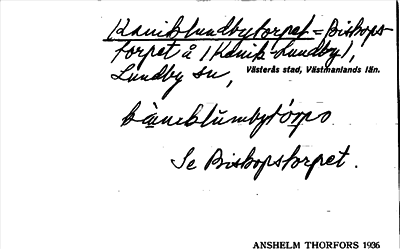 Kaniklundbytorpet = Biskops-
torpet å (Kanik-Lundby),
Lundby sn, Västerås stad, Västmanlands län.
Se Biskopstorpet.
ANSHELM THORFORS 1936